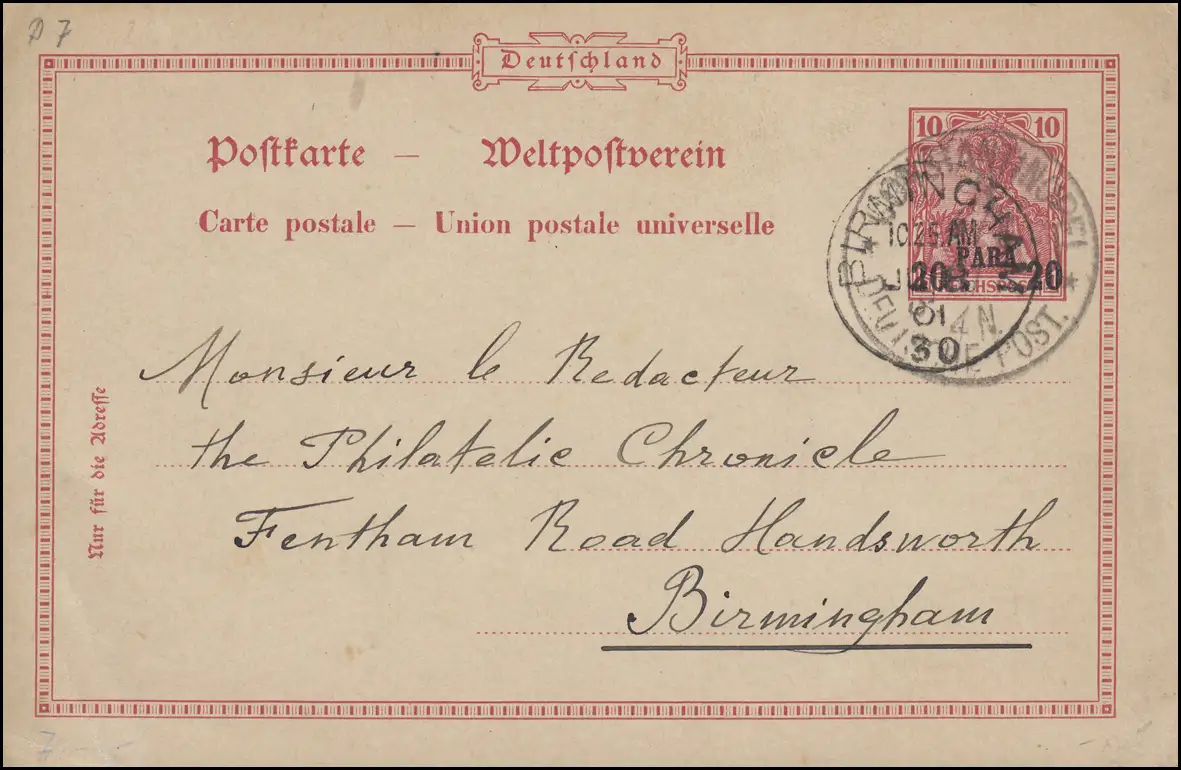 D 7
Deutschland
Postkarte – Weltpostverein
Carte postale – Union postale universelle
10 10
PARA
20 20
BIRMINGHAM
10 25 AM
01
30
DEUTSCHE POST.
Monsieur le Redacteur
the Philatelic Chronicle
Fentham Road Handsworth
Birmingham
Nur für die Adresse